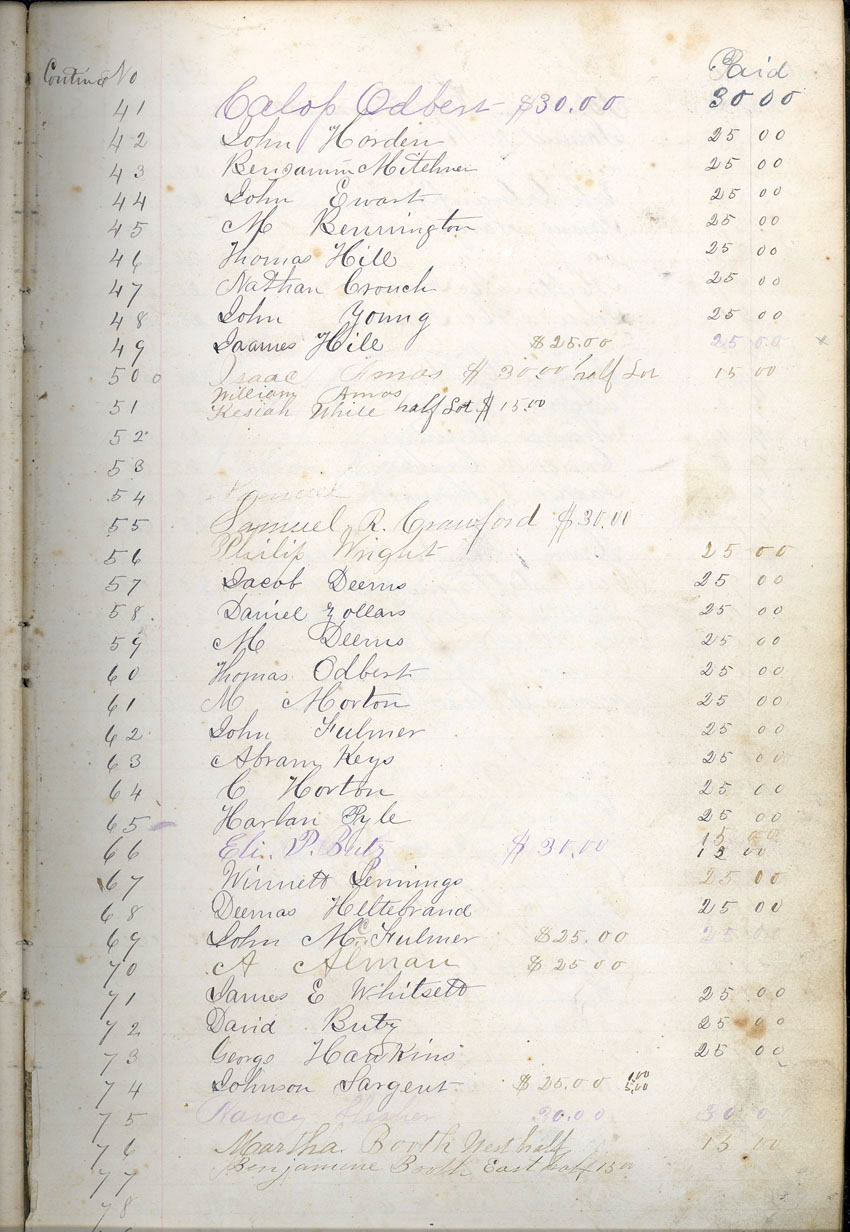 Continue No Paid
41 Calop Odbert $30.00 30 00
42 John Horden 25 00
43 Benjamin Mitchner 25 00
44 John Ewart 25 00
45 M Bennington 25 00
46 Thomas Hill 25 00
47 Nathan Crouch 25 00
48 John Young 25 00
49 Jaames Hill $25.00 25 00 x
50 0 Isaac Amos $30.00 half Lot 15 00
William Amos
51 Kesiah While half Lot $15.00
52
53
54
55 Samuel R. Crawford $30.00
56 Philip Wright 25 00
57 Jacob Deems 25 00
58 Daniel Zollars 25 00
59 M Deems 25 00
60 Thomas Odbert 25 00
61 M Morton 25 00
62 John Fulmer 25 00
63 Abram Keys 25 00
64 C Horton 25 00
65 Harlan Pyle 25 00
15 00
66 Eli. P. Butz $30.00 15 00
67 Winnett Jennings 25 00
68 Deemas Hiltebrand 25 00
69 John Mc Fulmer $25.00 25 00
70 A Alman $25 00
71 James E Whitsett 25 00
72 David Butz 25 00
73 George Hawkins 25 00
74 Johnson Sargent $25.00 1.00
5.00
75 Nancy 30.00 30 00
76 Martha Booth West half 15 00
Benjamine Booth East half 15 00
77
78